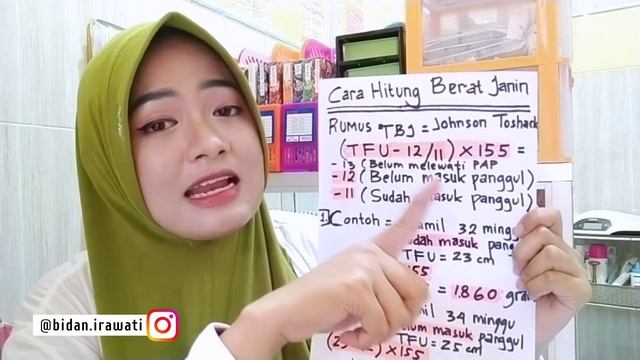 Cara Hitung Berat Janin
RUMUS TBJ = Johnson Toshack
(TFU - 12/11) X 155 =
- 13 (Belum melewati PAP
- 12 (Belum masuk panggul)
- 11 (Sudah masuk panggul)
1. Contoh = 32 minggu
masuk
TFU = 23 cm
155
= 1.860
34 minggu
masuk panggul
TFU = 25 cm
X 155
@bidan.irawati